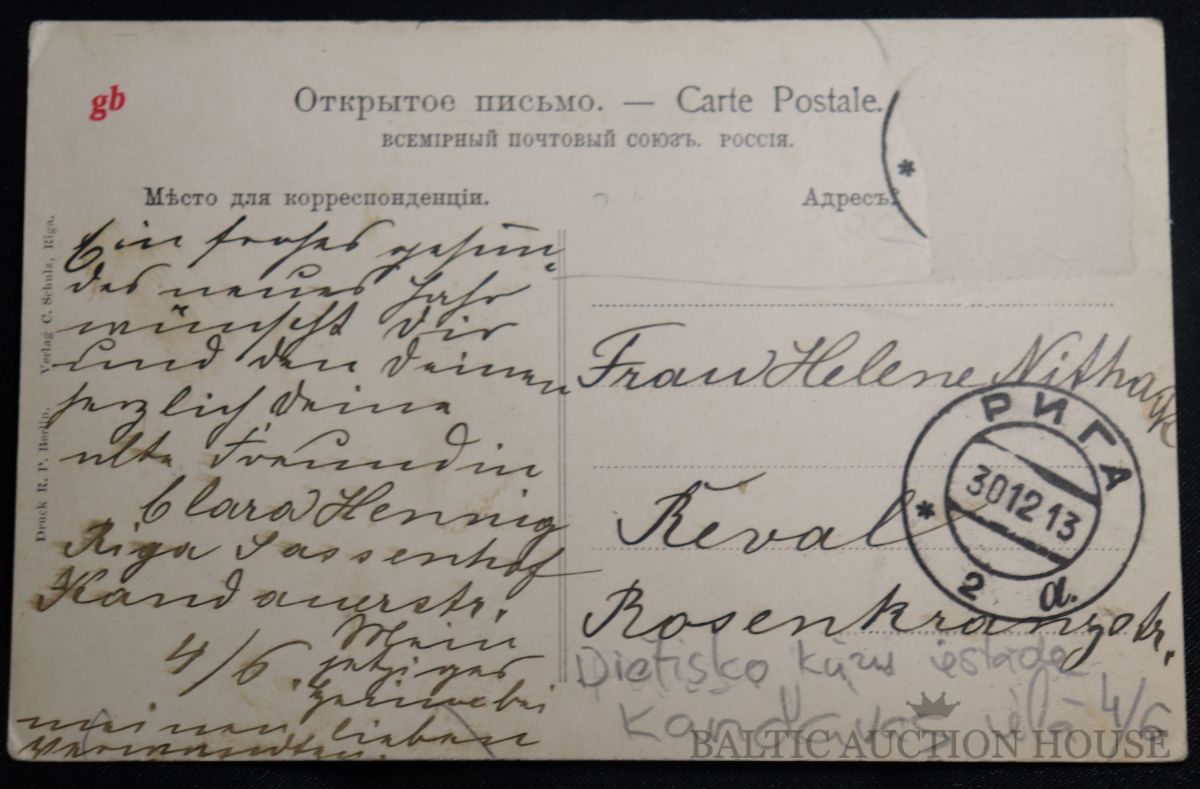 gb
Открытое письмо. — Carte Postale.
ВСЕМІРНЫЙ ПОЧТОВЫЙ СОЮЗЪ. РОССІЯ.
Мѣсто для корреспонденціи.
Адресъ:
Ein frohes gesun-
des neues Jahr
wünscht Dir
und den Deinen
herzlich Deine
alte Freundin
Clara Hennig
Riga Sassenhof
Kandauerstr.
4/6. Mein
jetziges
Heim bei
meinen lieben
Verwandten.
Druck R. P. Berlin. Verlag C. Schulz, Riga.
Frau Helene
Reval
Rosenkranzstr.
РИГА
30 12 13
2 d.
Dietisko kūru iestāde
Kandavas ielā 4/6
BALTIC AUCTION HOUSE